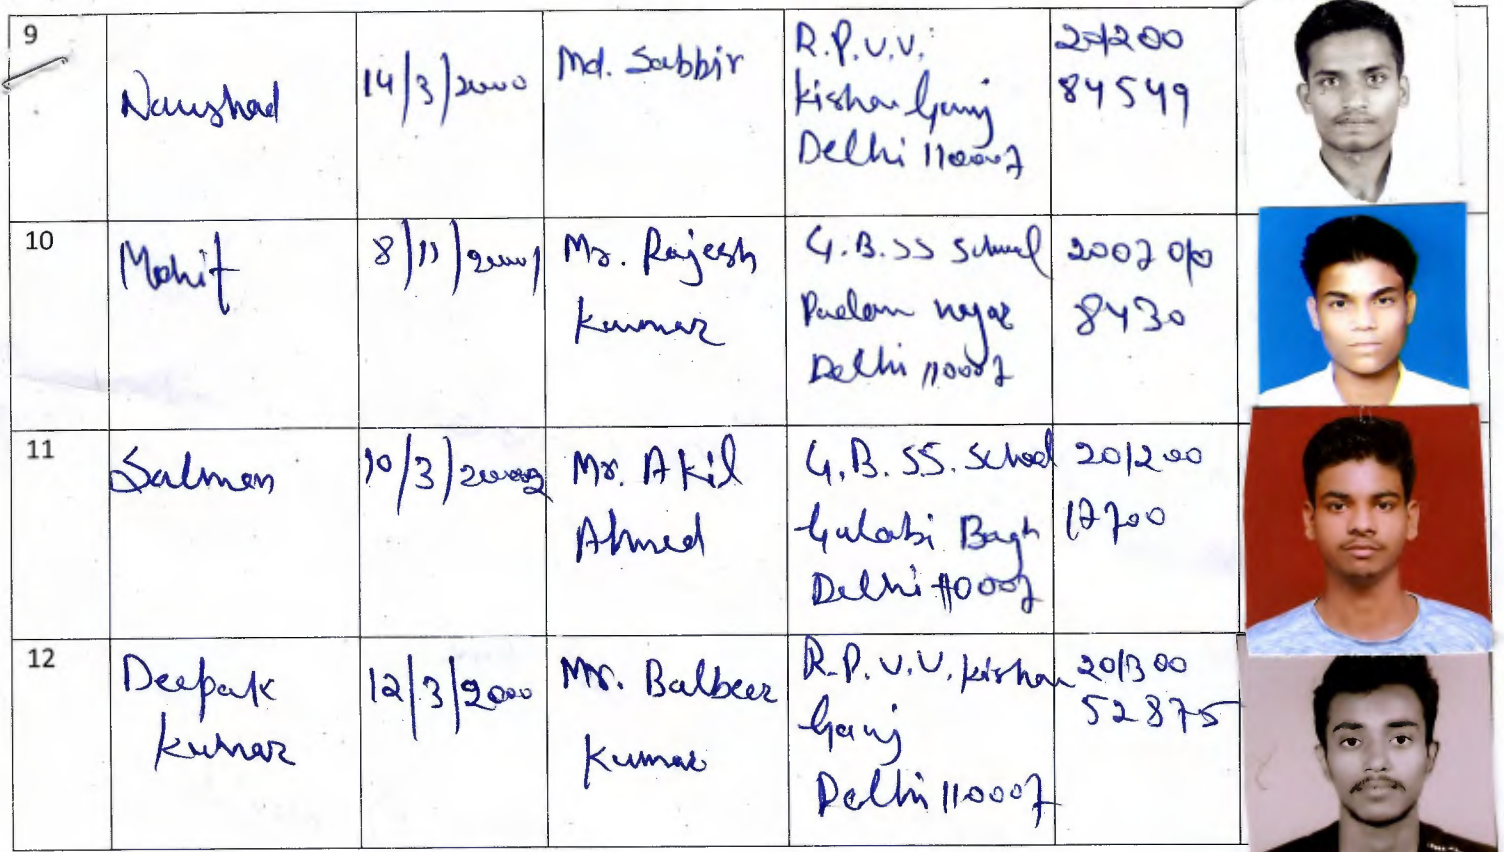 9
Naushad
14/3/2000
Md. Sabbir
R.P.V.V.
Kishan Ganj
Delhi 110007
20/200
84549
10
Mohit
8/11/2001
Mr. Rajesh
Kumar
G.B.SS School
Padam nagar
Delhi 110007
8430
11
Salman
10/3/
Mr. Akil
Ahmed
G.B.SS. School
Gulabi Bagh
Delhi 110007
201200
17700
12
Deepak
Kumar
12/3/2000
Mr. Balbeer
Kumar
R.P.V.V. Kishan
Ganj
Delhi 110007
201300
52875